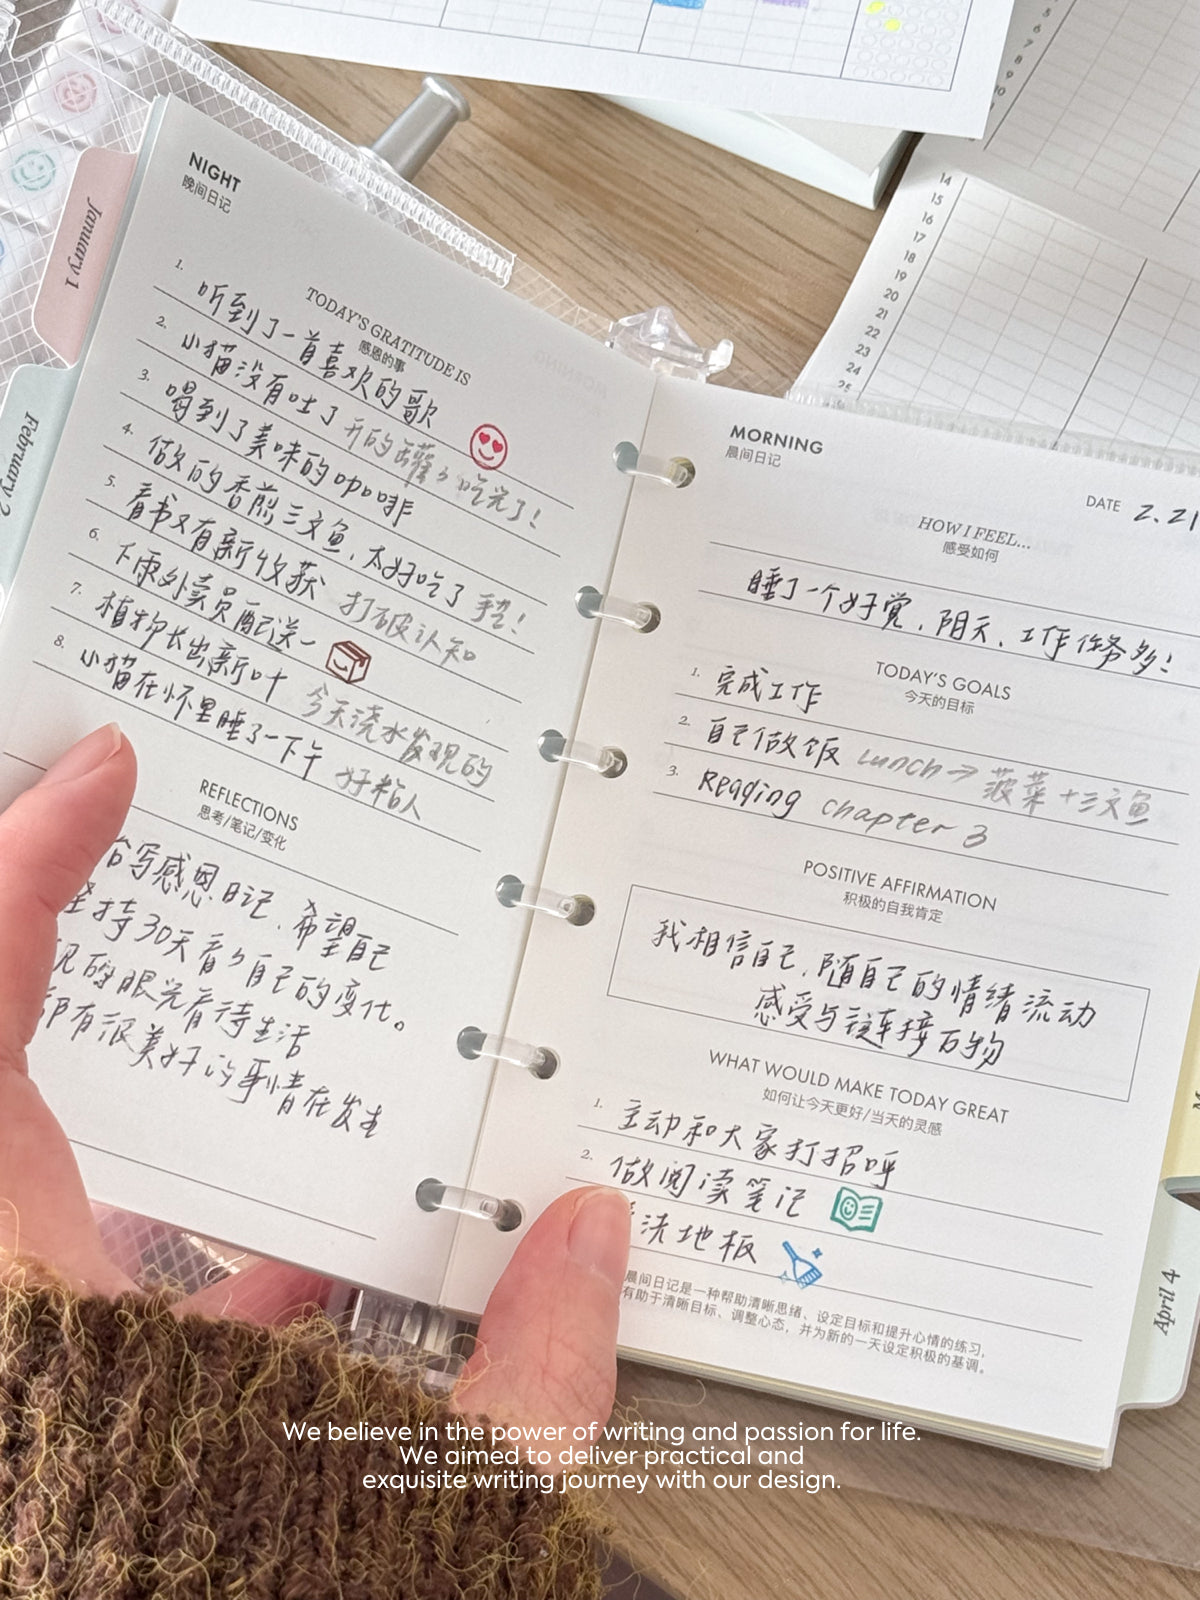 NIGHT
晚间日记
TODAY'S GRATITUDE IS
感恩的事
1. 听到了一首喜欢的歌
2. 小猫没有吐了 开的罐罐吃光了!
3. 喝到了美味的咖啡
4. 做的香煎三文鱼,太好吃了
5. 看书又有新收获 打破认知
6. 下雨外卖员配送一
7. 植物长出新叶 今天浇水发现的
8. 小猫在怀里睡了一下午 好粘人
REFLECTIONS
思考/笔记/变化
写感恩日记,希望自己
坚持30天看看自己的变化。
的眼光看待生活
都有很美好的事情在发生
January 1
February 2
MORNING
晨间日记
DATE 2.21
HOW I FEEL...
感受如何
睡了一个好觉,阴天,工作任务多!
TODAY'S GOALS
今天的目标
1. 完成工作
2. 自己做饭 Lunch→菠菜+三文鱼
3. Reading chapter 3
POSITIVE AFFIRMATION
积极的自我肯定
我相信自己,随自己的情绪流动
感受与链接万物
WHAT WOULD MAKE TODAY GREAT
如何让今天更好/当天的灵感
1. 主动和大家打招呼
2. 做阅读笔记
洗地板
晨间日记是一种帮助清晰思绪、设定目标和提升心情的练习,
有助于清晰目标、调整心态,并为新的一天设定积极的基调。
April 4
5
6
7
8
9
10
14
15
16
17
18
19
20
21
22
23
24
25
We believe in the power of writing and passion for life.
We aimed to deliver practical and
exquisite writing journey with our design.